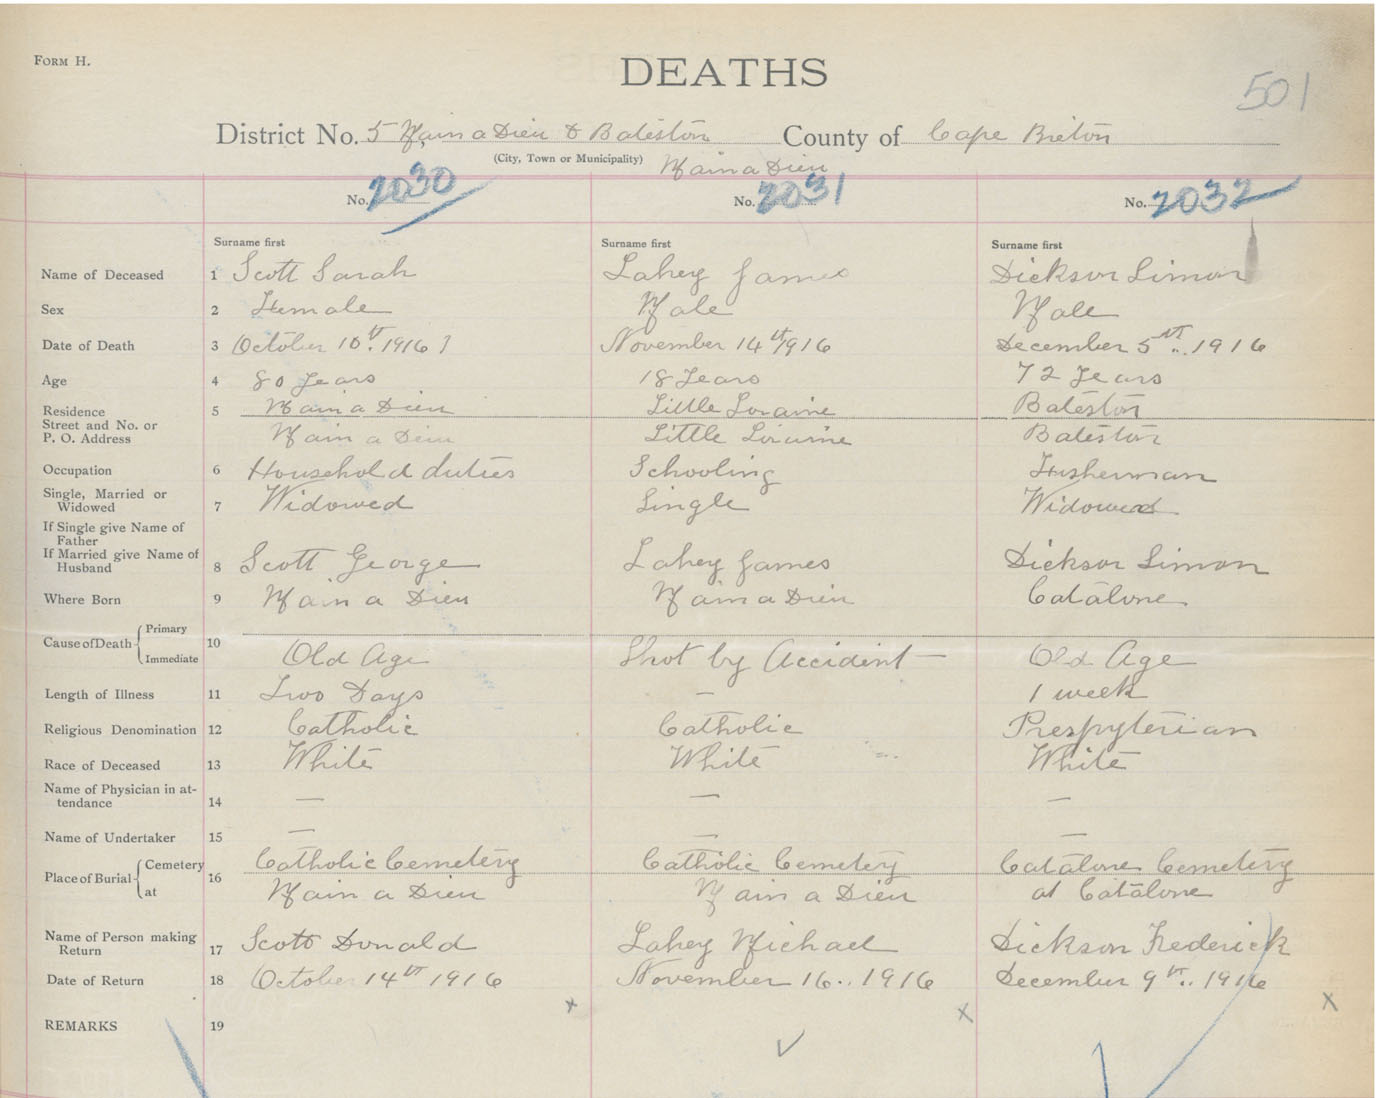 FORM H.
DEATHS
501
District No. 5 Main a Dieu & Bateston County of Cape Breton
(City, Town or Municipality) Main a Dieu
No. 2030 No. 2031 No. 2032
Surname first Surname first Surname first
Name of Deceased 1 Scott Sarah Lahey James Dickson Simon
Sex 2 Female Male Male
Date of Death 3 October 10th. 1916 November 14th 1916 December 5th.. 1916
Age 4 80 Years 18 Years 72 Years
Residence 5 Main a Dieu Little Loraine Bateston
Street and No. or
P. O. Address Main a Dieu Little Loraine Bateston
Occupation 6 Household duties Schooling Fisherman
Single, Married or
Widowed 7 Widowed Single Widowed
If Single give Name of
Father
If Married give Name of
Husband 8 Scott George Lahey James Dickson Simon
Where Born 9 Main a Dieu Main a Dieu Catalone
Cause of Death Primary 10
Immediate Old Age Shot by Accident — Old Age
Length of Illness 11 Two Days — 1 week
Religious Denomination 12 Catholic Catholic Prespyterian
Race of Deceased 13 White White White
Name of Physician in at-
tendance 14 — — —
Name of Undertaker 15 — — —
Place of Burial Cemetery 16 Catholic Cemetery Catholic Cemetery Catalone Cemetery
at Main a Dieu Main a Dieu at Catalone
Name of Person making
Return 17 Scott Donald Lahey Michael Dickson Frederick
Date of Return 18 October 14th 1916 November 16.. 1916 December 9th.. 1916
x x x
REMARKS 19